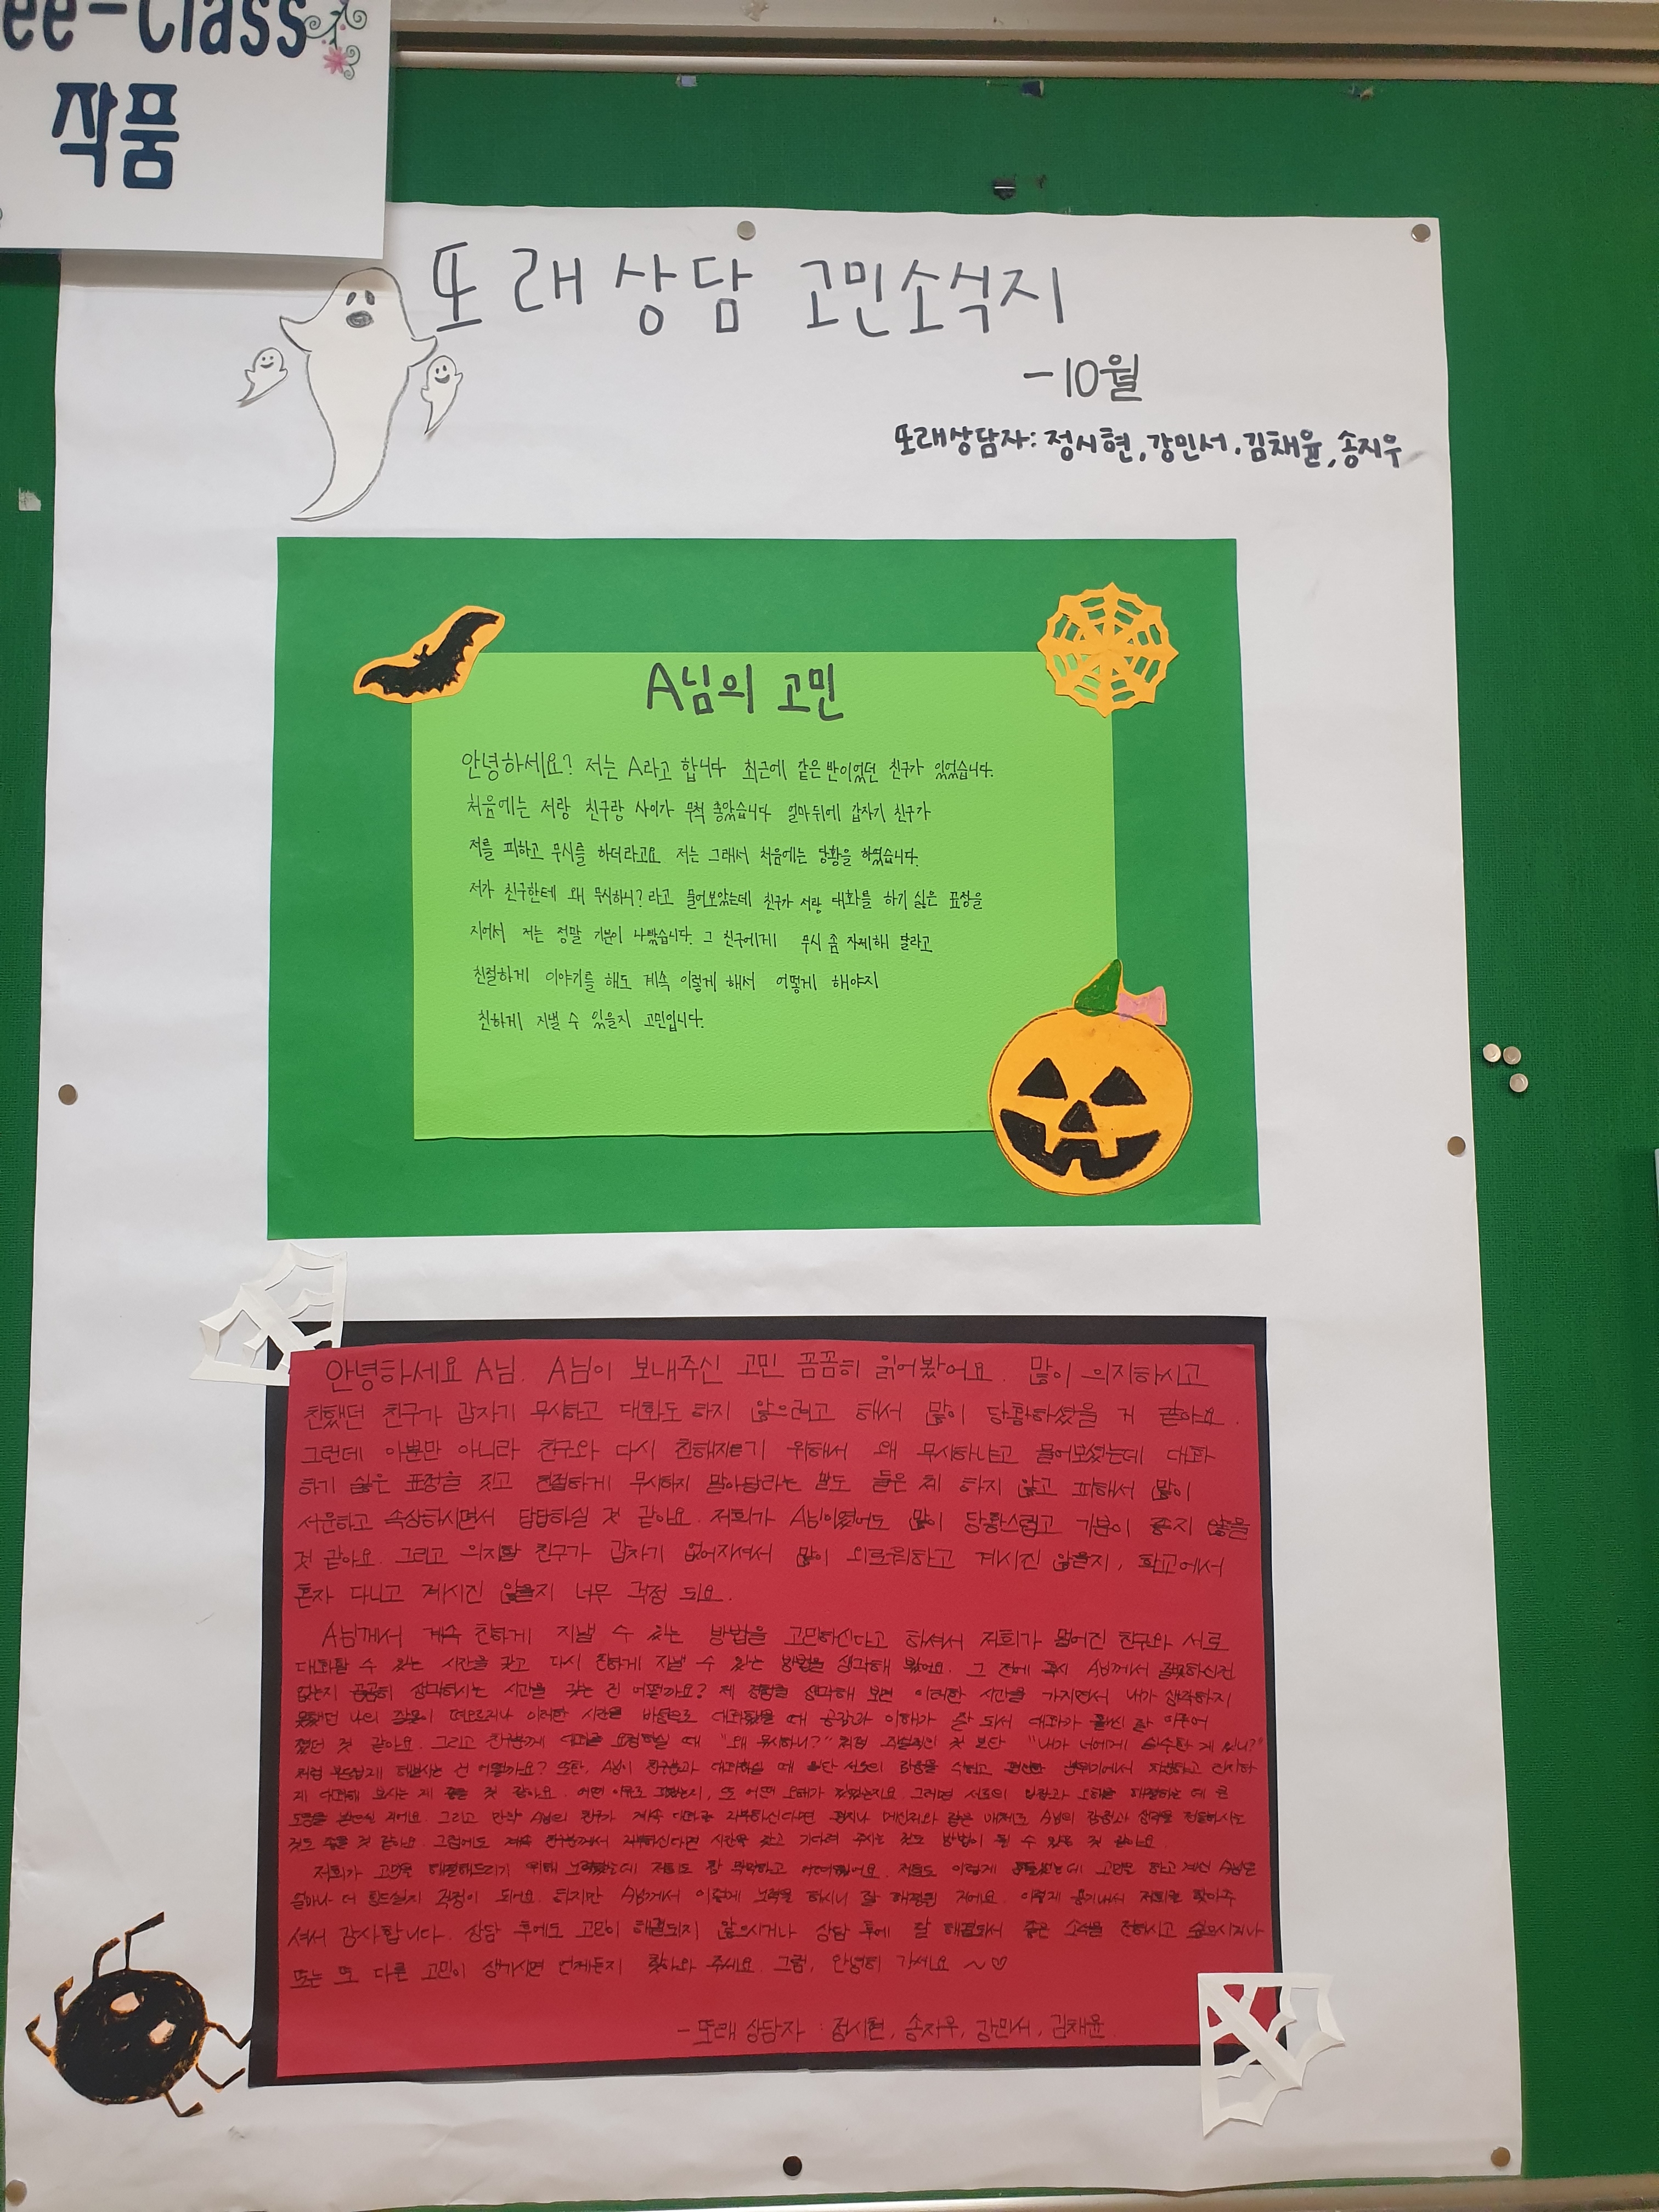 ee-Class
작품
또래상담 고민소식지
-10월
또래상담자: 정시현, 강민서, 김채윤, 송지우
A님의 고민
안녕하세요? 저는 A라고 합니다 최근에 같은 반이었던 친구가 있었습니다.
처음에는 저랑 친구랑 사이가 무척 좋았습니다 얼마뒤에 갑자기 친구가
저를 피하고 무시를 하더라고요 저는 그래서 처음에는 당황을 하였습니다.
저가 친구한테 왜 무시하니? 라고 물어보았는데 친구가 저랑 대화를 하기 싫은 표정을
지어서 저는 정말 기분이 나빴습니다. 그 친구에게 무시 좀 자제해 달라고
친절하게 이야기를 해도 계속 이렇게 해서 어떻게 해야지
친하게 지낼 수 있을지 고민입니다.
안녕하세요 A님. A님이 보내주신 고민 꼼꼼히 읽어봤어요. 많이 의지하시고
친했던 친구가 갑자기 무시하고 대화도 하지 않으려고 해서 많이 당황하셨을 거 같아요.
그런데 이뿐만 아니라 친구와 다시 친해지기 위해서 왜 무시하냐고 물어보셨는데 대화
하기 싫은 표정을 짓고 친절하게 무시하지 말아달라는 말도 들은 체 하지 않고 피해서 많이
서운하고 속상하시면서 답답하실 것 같아요. 저희가 A님이였어도 많이 당황스럽고 기분이 좋지 않을
것 같아요. 그리고 의지할 친구가 갑자기 없어지셔서 많이 외로워하고 계시진 않을지, 학교에서
혼자 다니고 계시진 않을지 너무 걱정 되요.
A님께서 계속 친하게 지낼 수 있는 방법을 고민하신다고 하셔서 저희가 멀어진 친구와 서로
대화할 수 있는 시간을 갖고 다시 친하게 지낼 수 있는 방법을 생각해 봤어요. 그 전에 혹시 A님께서 잘못하신건
없는지 곰곰히 생각하시는 시간을 갖는 건 어떨까요? 제 경험을 생각해 보면 이러한 시간을 가지면서 내가 생각하지
못했던 나의 잘못이 떠오르거나 이러한 시간을 바탕으로 대화했을 때 공감과 이해가 잘 되서 대화가 훨씬 잘 이루어
졌던 것 같아요. 그리고 친구에게 때 "왜 무시하니?" 처럼 보단 "내가 너에게 실수한 게 있니?"
처럼 부드럽게 해보시는 건 어떨까요? 또한, A님이 친구와 대화하실 때 일단 서로의 감정을 분위기에서 진지하
게 대화해 보시는 게 좋을 것 같아요. 어떤 이유로 그랬는지, 또 어떤 오해가 있었는지요. 그러면 서로의 데 큰
도움을 받으실 거에요. 그리고 만약 A님의 친구가 계속 대화를 거부하신다면 편지나 메신저와 같은 매체로 A님의 감정과 생각을 전달하시는
것도 좋을 것 같아요. 그럼에도 계속 친구께서 거부하신다면 시간을 갖고 기다려 주시는 것도 방법이 될 수 있을 것 같아요.
저희가 고민을 해결해드리기 위해 노력했는데 저희도 참 막막하고 어려웠어요. 저희도 이렇게 힘들었는데 고민을 하고 계신 A님은
얼마나 더 힘드실지 걱정이 되어요. 하지만 A님께서 이렇게 노력을 하시니 잘 해결될 거에요. 이렇게 용기내서 저희를 찾아주
셔서 감사합니다. 상담 후에도 고민이 해결되지 않으시거나 상담 후에 잘 해결되서 좋은 소식을 전하시고 싶으시거나
또는 또 다른 고민이 생기시면 언제든지 찾아와 주세요. 그럼, 안녕히 가세요 ~♡
- 또래 상담자 : 정시현, 송지우, 강민서, 김채윤